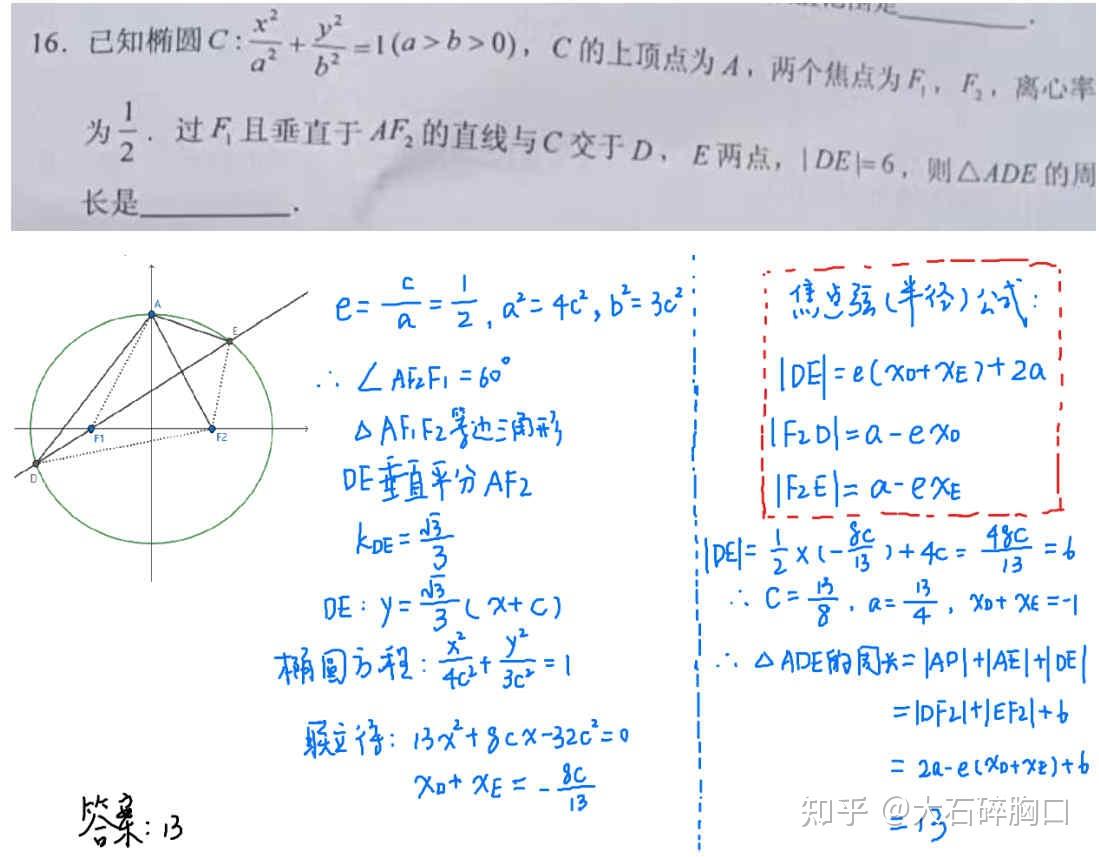 16. 已知椭圆 C : x²/a² + y²/b² = 1 (a > b > 0), C 的上顶点为 A, 两个焦点为 F₁, F₂, 离心率
为 1/2. 过 F₁ 且垂直于 AF₂ 的直线与 C 交于 D, E 两点, |DE|=6, 则△ADE 的周
长是________.
A
E
F1
F2
D
e = c/a = 1/2, a² = 4c², b² = 3c²
∴ ∠AF₂F₁ = 60°
△AF₁F₂等边三角形
DE垂直平分AF2
k_DE = √3/3
DE: y = √3/3 (x+c)
椭圆方程: x²/4c² + y²/3c² = 1
联立得: 13x² + 8cx - 32c² = 0
x_D + x_E = -8c/13
答案: 13
焦点弦(半径)公式:
|DE| = e(x_D + x_E) + 2a
|F₂D| = a - ex_D
|F₂E| = a - ex_E
|DE| = 1/2 × (-8c/13) + 4c = 48c/13 = 6
∴ C = 13/8, a = 13/4, x_D + x_E = -1
∴ △ADE的周长 = |AD| + |AE| + |DE|
= |DF2| + |EF2| + 6
= 2a - e(x_D + x_E) + 6
= 13
知乎 @大石碎胸口